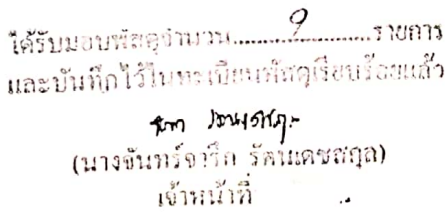 ได้รับมอบพัสดุจำนวน..........9..........รายการ
และบันทึกไว้ในทะเบียนพัสดุเรียบร้อยแล้ว
(นางจันทร์จารึก รัตนเดชสกุล)
เจ้าหน้าที่